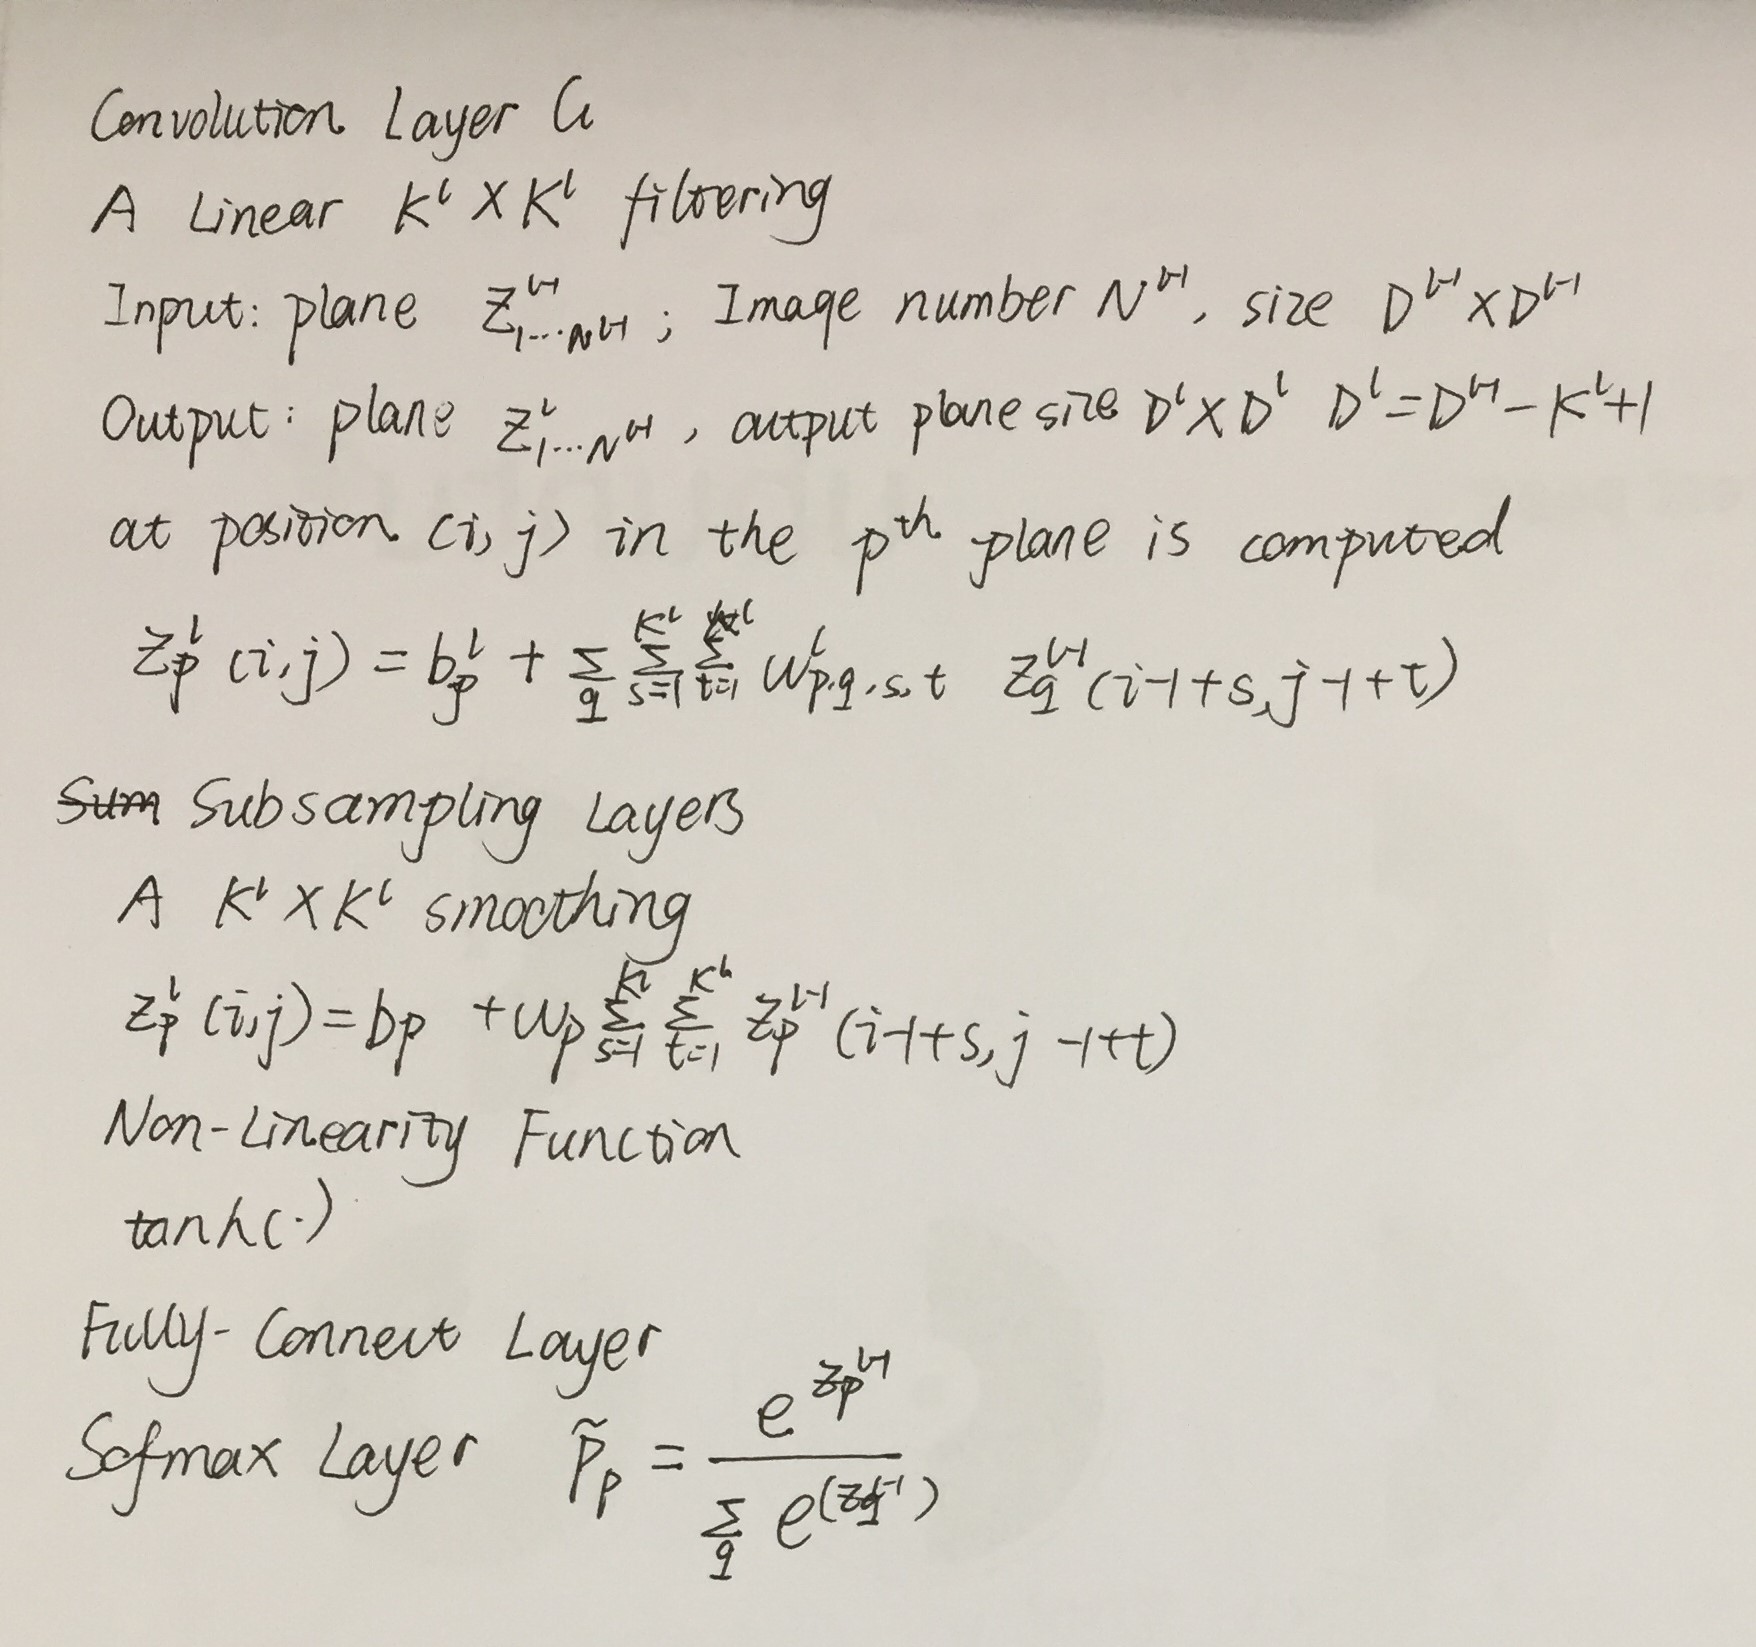 Convolution Layer Cl
A Linear K^l X K^l filtering
Input: plane Z^{l-1}_{1...N^{l-1}} ; Image number N^{l-1}, size D^{l-1} X D^{l-1}
Output: plane Z^l_{1...N^{l-1}}, output plane size D^l X D^l D^l = D^{l-1} - K^l + 1
at position (i, j) in the p^{th} plane is computed
Z^l_p (i,j) = b^l_p + Σ_q Σ_{s=1}^{K^l} Σ_{t=1}^{K^l} w^l_{p.q.s.t} Z^{l-1}_q (i-1+s, j-1+t)
Sum Subsampling Layers
A K^l X K^l smoothing
Z^l_p (i,j) = b_p + w_p Σ_{s=1}^{K^l} Σ_{t=1}^{K^l} Z^{l-1}_p (i-1+s, j-1+t)
Non-Linearity Function
tanh(·)
Fully-Connect Layer
Sofmax Layer p̃_p = e^{Z^{l-1}_p} / Σ_q e^{(Z^{l-1}_q)}